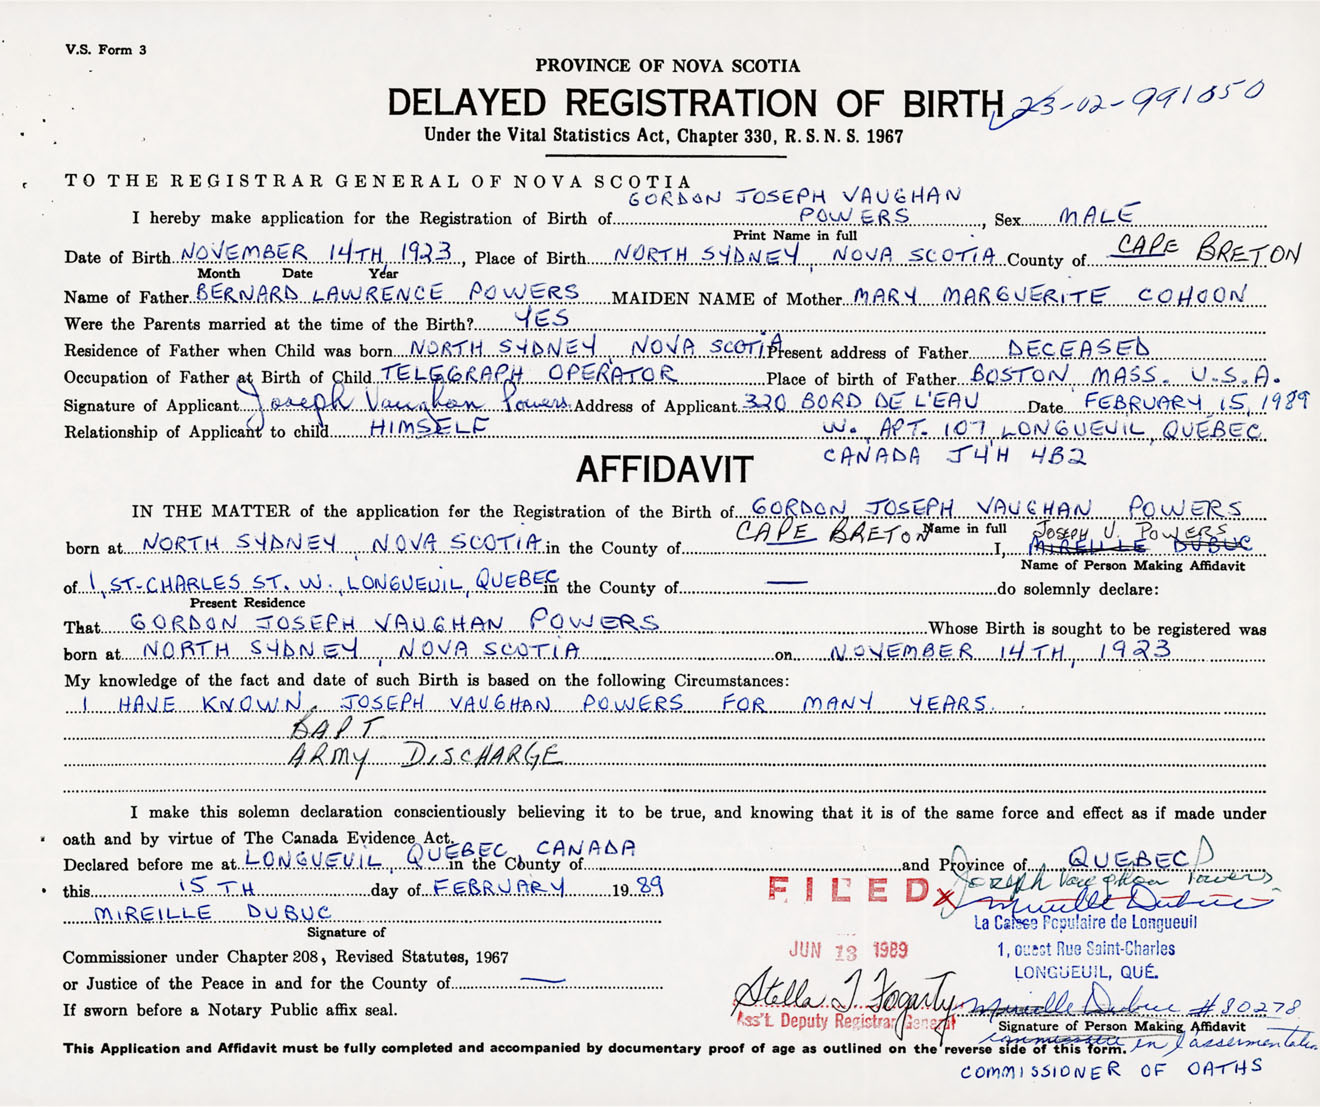 V.S. Form 3
PROVINCE OF NOVA SCOTIA
DELAYED REGISTRATION OF BIRTH 23-02-991050
Under the Vital Statistics Act, Chapter 330, R.S.N.S. 1967
TO THE REGISTRAR GENERAL OF NOVA SCOTIA
GORDON JOSEPH VAUGHAN
I hereby make application for the Registration of Birth of POWERS, Sex MALE
Print Name in full
Date of Birth NOVEMBER 14TH, 1923, Place of Birth NORTH SYDNEY, NOVA SCOTIA County of CAPE BRETON
Month Date Year
Name of Father BERNARD LAWRENCE POWERS MAIDEN NAME of Mother MARY MARGUERITE COHOON
Were the Parents married at the time of the Birth? YES
Residence of Father when Child was born NORTH SYDNEY, NOVA SCOTIA Present address of Father DECEASED
Occupation of Father at Birth of Child TELEGRAPH OPERATOR Place of birth of Father BOSTON, MASS. U.S.A.
Signature of Applicant Joseph Vaughan Powers Address of Applicant 320 BORD DE L'EAU Date FEBRUARY 15, 1989
Relationship of Applicant to child HIMSELF W., APT. 107, LONGUEUIL, QUÉBEC
CANADA J4H 4B2
AFFIDAVIT
IN THE MATTER of the application for the Registration of the Birth of GORDON JOSEPH VAUGHAN POWERS
Name in full JOSEPH V. POWERS
born at NORTH SYDNEY, NOVA SCOTIA in the County of CAPE BRETON I, MIREILLE DUBUC
Name of Person Making Affidavit
of 1, ST-CHARLES ST. W., LONGUEUIL, QUEBEC in the County of — do solemnly declare:
Present Residence
That GORDON JOSEPH VAUGHAN POWERS Whose Birth is sought to be registered was
born at NORTH SYDNEY, NOVA SCOTIA on NOVEMBER 14TH, 1923
My knowledge of the fact and date of such Birth is based on the following Circumstances:
I HAVE KNOWN JOSEPH VAUGHAN POWERS FOR MANY YEARS.
BAPT.
ARMY DISCHARGE
I make this solemn declaration conscientiously believing it to be true, and knowing that it is of the same force and effect as if made under
oath and by virtue of The Canada Evidence Act.
Declared before me at LONGUEUIL, QUÉBEC, CANADA in the County of and Province of QUEBEC
this 15TH day of FEBRUARY 1989
FILED x Joseph Vaughan Powers
MIREILLE DUBUC Mireille Dubuc
Signature of
La Caisse Populaire de Longueuil
JUN 13 1989
1, ouest Rue Saint-Charles
LONGUEUIL, QUÉ.
Commissioner under Chapter 208, Revised Statutes, 1967
or Justice of the Peace in and for the County of —
If sworn before a Notary Public affix seal.
Stella T. Fogarty
Ass't. Deputy Registrar General
Mireille Dubuc #80278
Signature of Person Making Affidavit
This Application and Affidavit must be fully completed and accompanied by documentary proof of age as outlined on the reverse side of this form.
COMMISSIONER OF OATHS